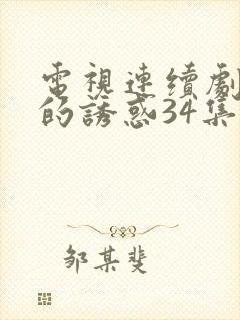 電視連續劇
的誘惑34集
邹某斐